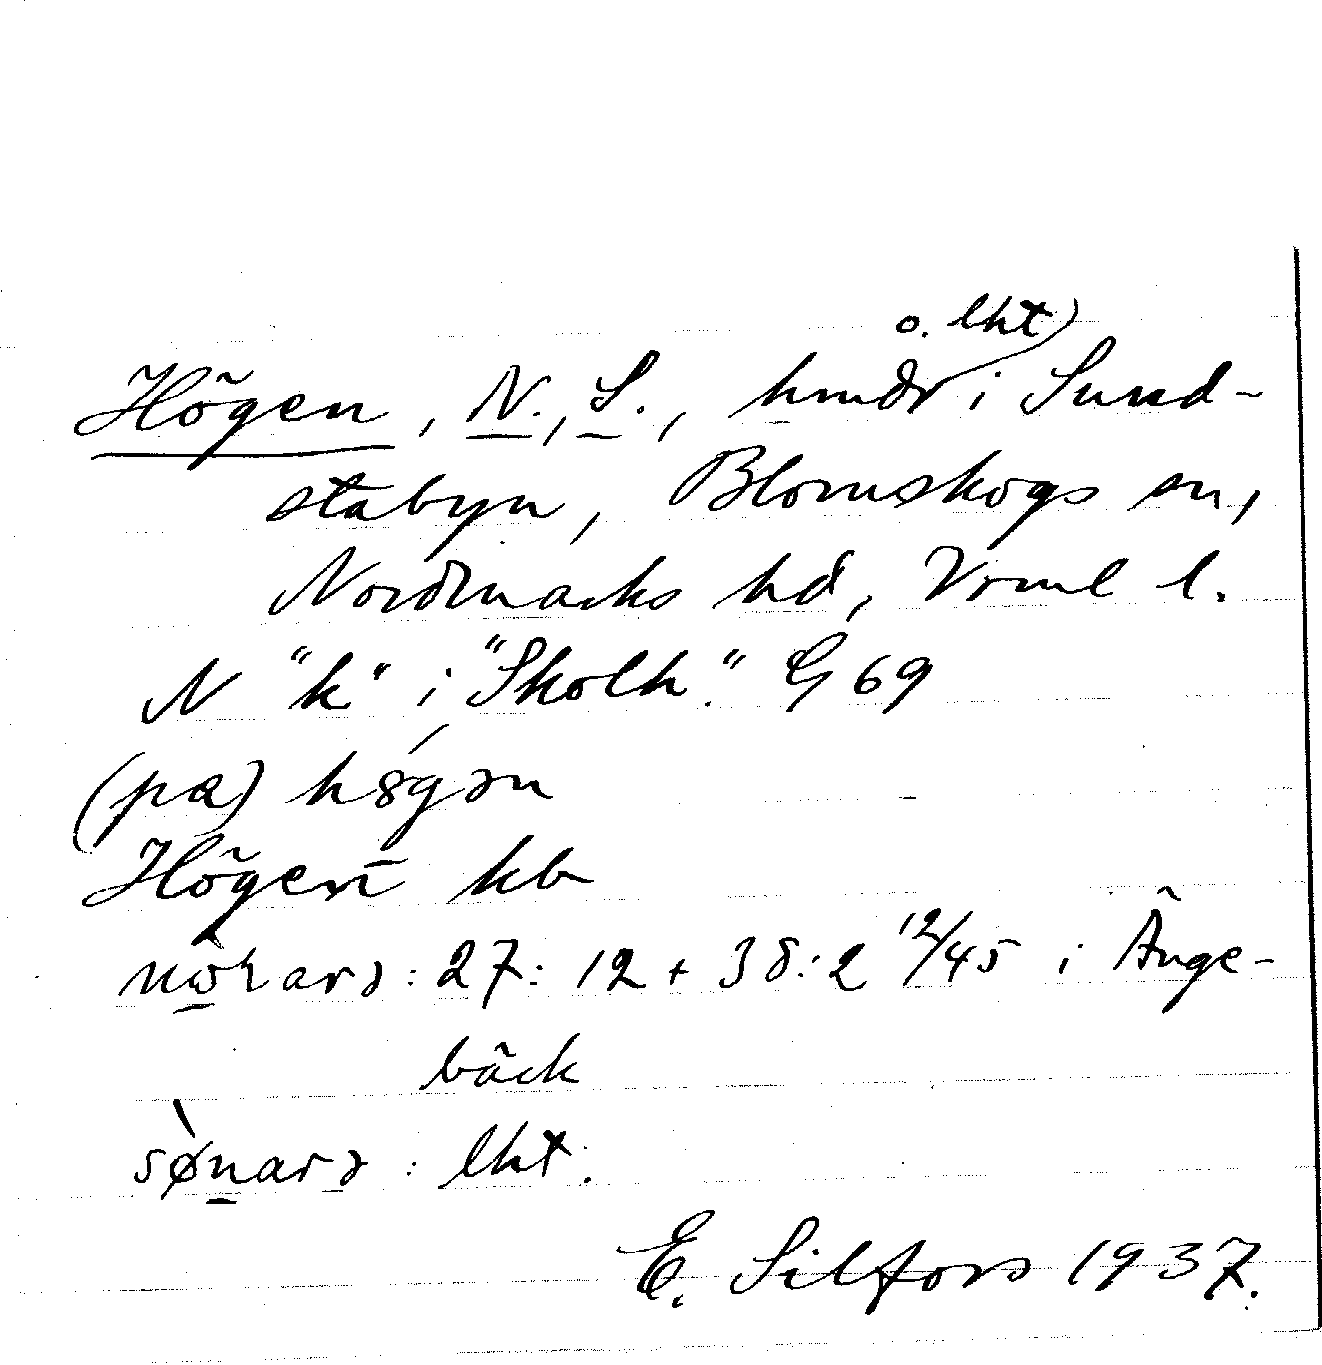 o. lht)
Högen, N., S., hmdr i Sund-
stabyn, Blomskogs sn,
Nordmarks hd, Vrml l.
N "k" i "Skolh." G 69
(pa) hög
Högen kb
: 27: 12 + 38:2 12/45 i Änge-
bäck
sønarə : lht.
E. Silfors 1937.